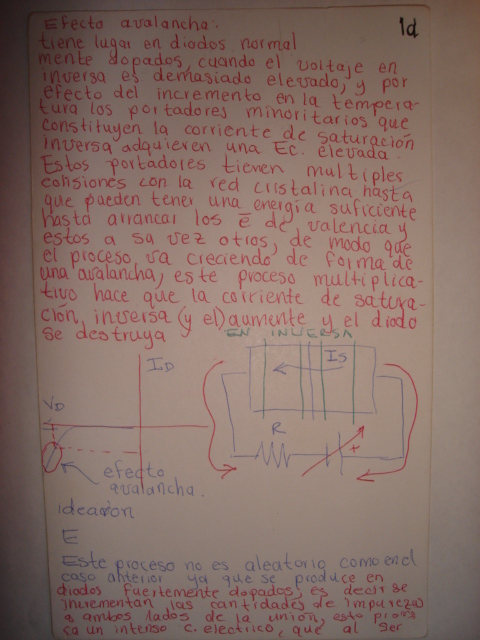 Efecto avalancha:
1d
tiene lugar en diodos normal
mente dopados, cuando el voltaje en
inversa es demasiado elevado, y por
efecto del incremento en la tempera-
tura los portadores minoritarios que
constituyen la corriente de saturación
inversa adquieren una Ec. elevada.
Estos portadores tienen multiples
colisiones con la red cristalina hasta
que pueden tener una energía suficiente
hasta arrancar los e de valencia y
estos a sa vez otros, de modo que
el proceso va creciendo de forma de
una avalancha, este proceso multiplica-
tivo hace que la corriente de satura-
ción, inversa (y el) aumente y el diodo
se destruya
EN INVERSA
ID
IS
VD
R
+
efecto
avalancha.
ideación
E
Este proceso no es aleatorio como en el
caso anterior ya que se produce en
diodos fuertemente dopados, es decir se
incrementan las cantidades de impurezas
a ambos lados de la unión, esto
ca un intenso c. electrico, que al ser